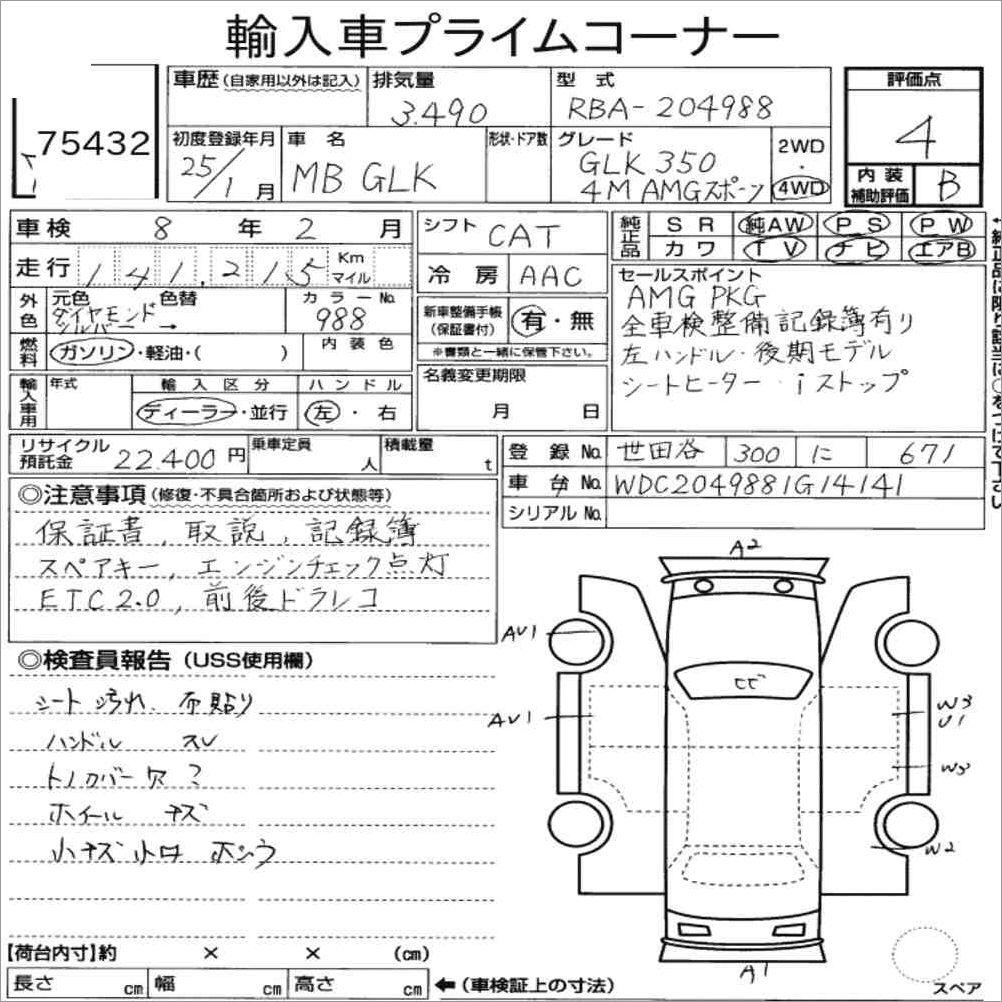 輸入車プライムコーナー
75432
車歴(自家用以外は記入)
排気量
3.490
型式
RBA-204988
評価点
4
初度登録年月
25/1月
車名
MB GLK
形状・ドア数
グレード
GLK 350
4M AMGスポーツ
2WD
・
4WD
内装
補助評価
B
車検 8年 2月
シフト
CAT
純正品
SR 純AW PS PW
カワ TV ナビ エアB
走行 141,215 Km マイル
冷房 AAC
セールスポイント
AMG PKG
全車検整備記録簿有り
左ハンドル・後期モデル
シートヒーター・iストップ
外色
元色
色替
ダイヤモンド
シルバー →
カラーNo.
988
新車整備手帳
(保証書付)
有・無
※書類と一緒に保管下さい。
燃料
ガソリン・軽油・( )
内装色
名義変更期限
月 日
輸入車用
年式
輸入区分
ディーラー・並行
ハンドル
左・右
リサイクル
預託金
22.400円
乗車定員
人
積載量
t
登録No. 世田谷 300 に 671
車台No. WDC2049881G14141
シリアルNo.
◎注意事項(修復・不具合箇所および状態等)
保証書, 取説, 記録簿
スペアキー, エンジンチェック点灯
ETC2.0, 前後ドラレコ
◎検査員報告(USS使用欄)
シート汚れ、布貼り
ハンドル スレ
トノカバー欠?
ホイール キズ
小キズ小凹 ホシウ
A2
AV1
AV1
ヒビ
W3
U1
W3
W2
A1
スペア
【荷台内寸】約 × × (cm)
長さ cm 幅 cm 高さ cm
←(車検証上の寸法)